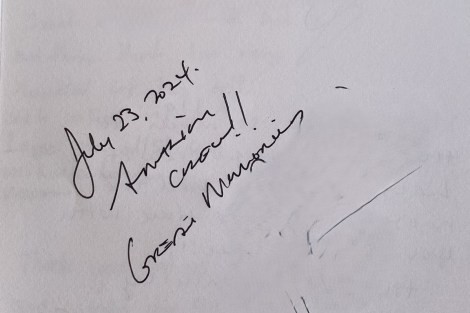 July 23, 2024.
Amazing
crowd!!
Great Memories